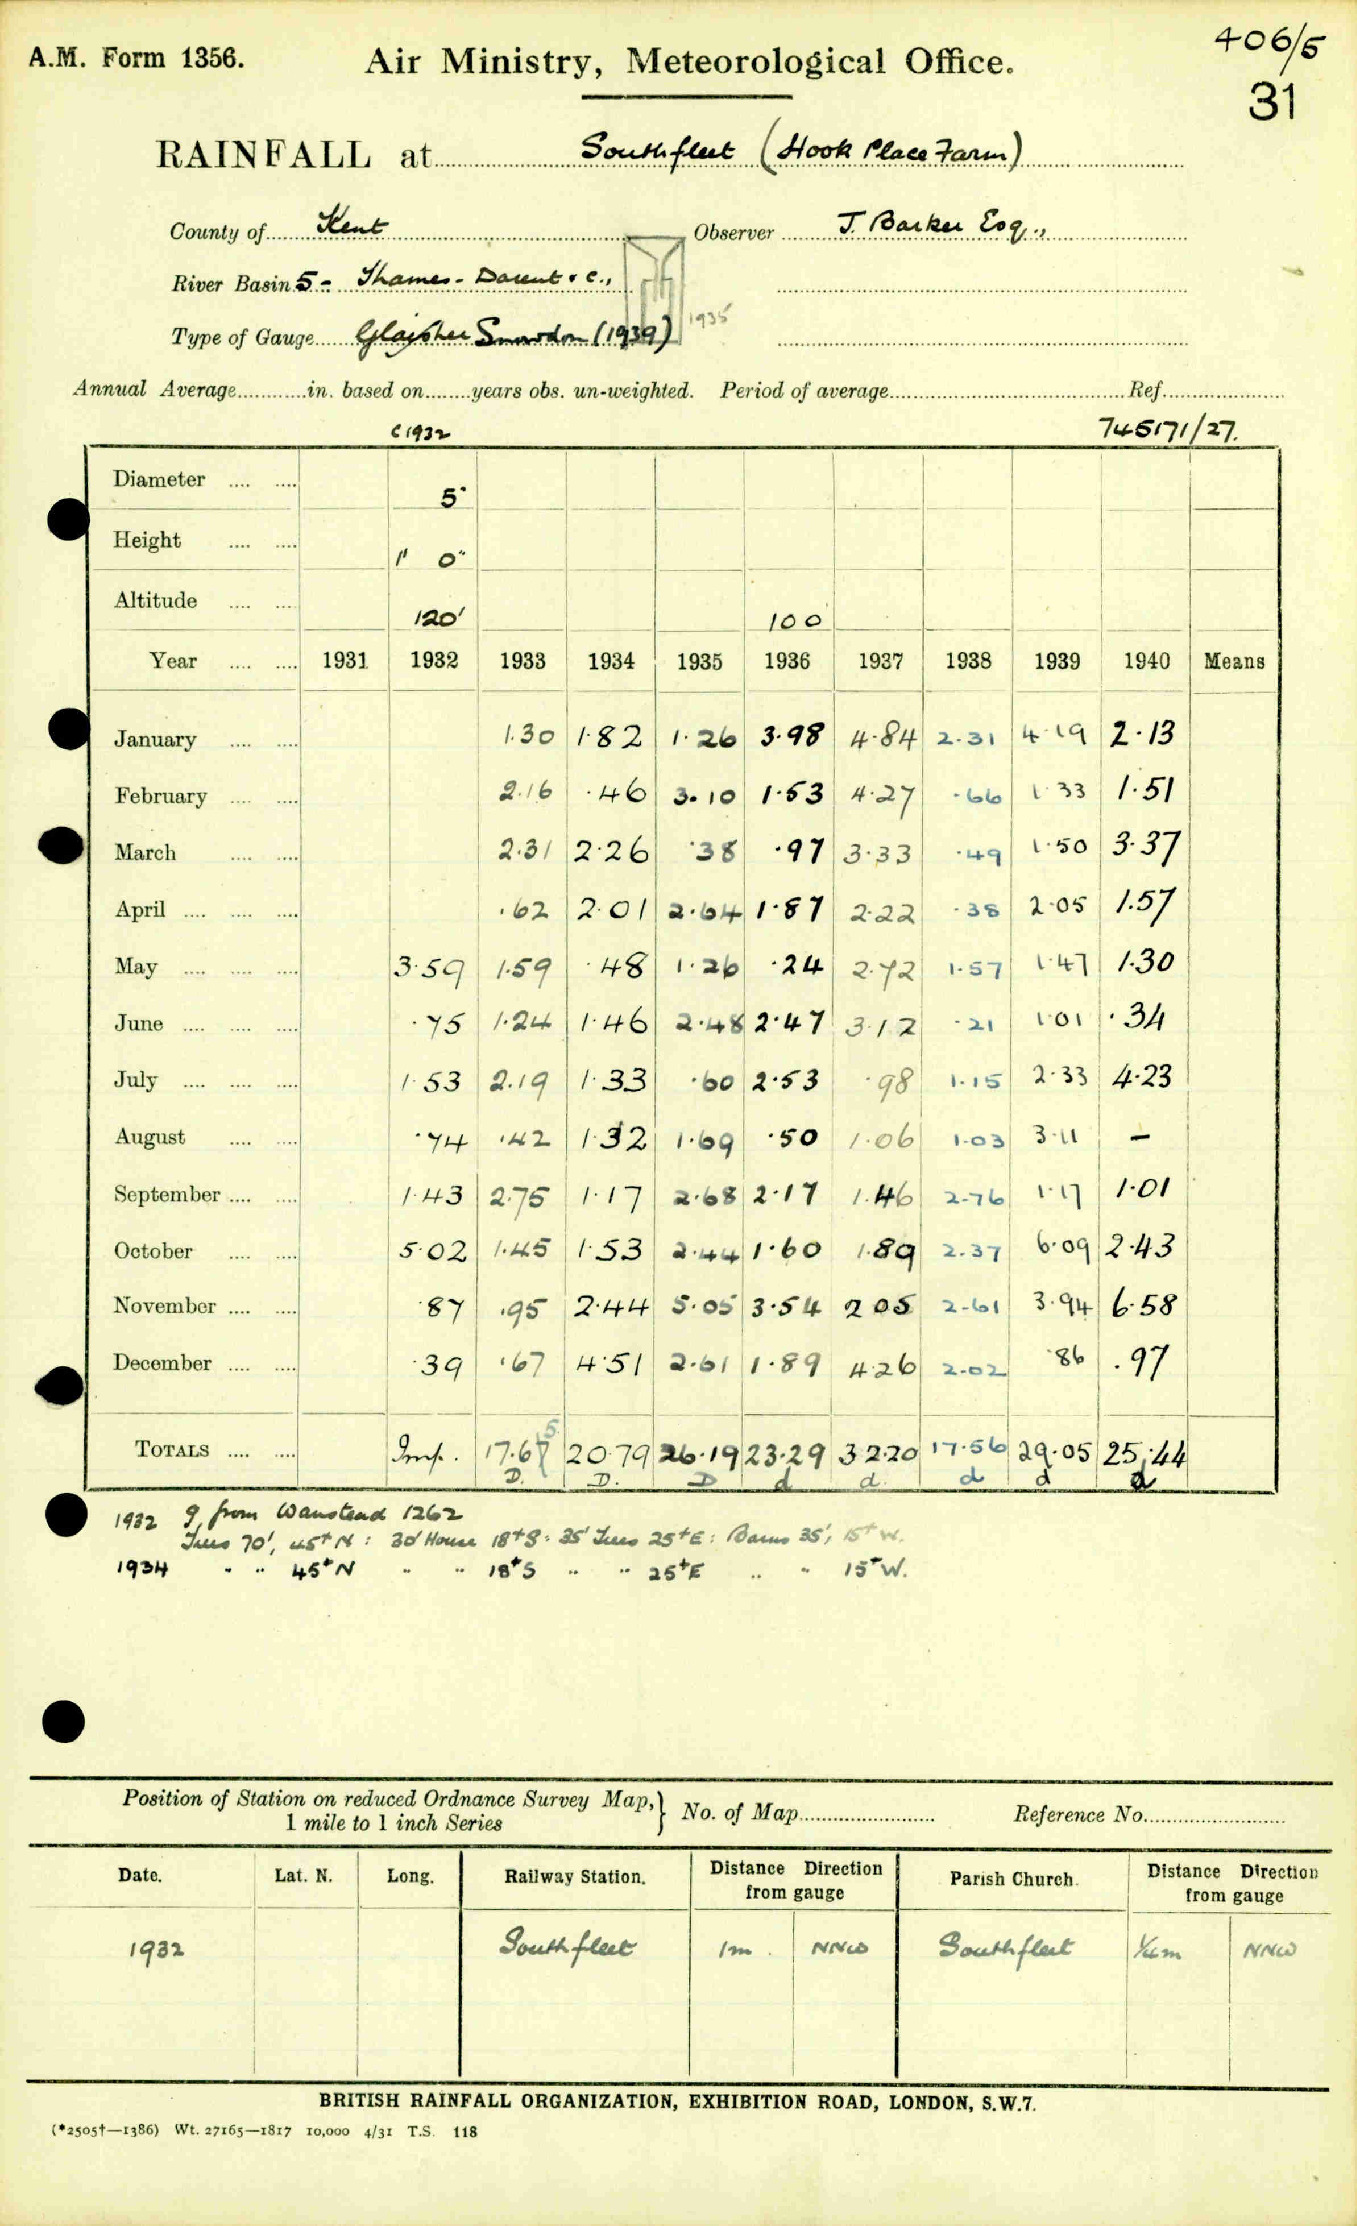 406/5
A.M. Form 1356. Air Ministry, Meteorological Office.
31
RAINFALL at Southfleet (Hook Place Farm)
County of Kent Observer J. Barker Esq.,
River Basin 5 - Thames - Darent & c.,
Type of Gauge Glaisher Snowdon (1939) 1935
Annual Average in. based on years obs. un-weighted. Period of average Ref.
c 1932 745171/27.
Diameter .... .... 5"
Height .... .... 1' 0"
Altitude .... .... 120' 100
Year .... .... 1931 1932 1933 1934 1935 1936 1937 1938 1939 1940 Means
January .... .... 1.30 1.82 1.26 3.98 4.84 2.31 4.19 2.13
February .... .... 2.16 .46 3.10 1.53 4.27 .66 1.33 1.51
March .... .... 2.31 2.26 .38 .97 3.33 .49 1.50 3.37
April .... .... .... .62 2.01 2.64 1.87 2.22 .38 2.05 1.57
May .... .... .... 3.59 1.59 .48 1.26 .24 2.72 1.57 1.47 1.30
June .... .... .... .75 1.24 1.46 2.48 2.47 3.12 .21 1.01 .34
July .... .... .... 1.53 2.19 1.33 .60 2.53 .98 1.15 2.33 4.23
August .... .... .74 .42 1.32 1.69 .50 1.06 1.03 3.11 —
September .... .... 1.43 2.75 1.17 2.68 2.17 1.46 2.76 1.17 1.01
October .... .... 5.02 1.45 1.53 2.44 1.60 1.89 2.37 6.09 2.43
November .... .... .87 .95 2.44 5.05 3.54 2.05 2.61 3.94 6.58
December .... .... .39 .67 4.51 2.61 1.89 4.26 2.02 .86 .97
TOTALS .... .... Imp. 17.67 5 20.79 26.19 23.29 32.20 17.56 29.05 25.44
D. D. D d d. d d d
1932 g from Wanstead 1262
Trees 70', 45+ N : 30' House 18+ S : 35' Trees 25+ E : Barns 35', 15+ W.
1934 " " 45+ N " " 18+ S " " 25+ E " " 15+ W.
Position of Station on reduced Ordnance Survey Map, } No. of Map Reference No.
1 mile to 1 inch Series
Date. Lat. N. Long. Railway Station. Distance Direction from gauge Parish Church. Distance Direction from gauge
1932 Southfleet 1m. NNW Southfleet ¼m NNW
BRITISH RAINFALL ORGANIZATION, EXHIBITION ROAD, LONDON, S.W.7.
(*2505†—1386) Wt. 27165—1817 10,000 4/31 T.S. 118